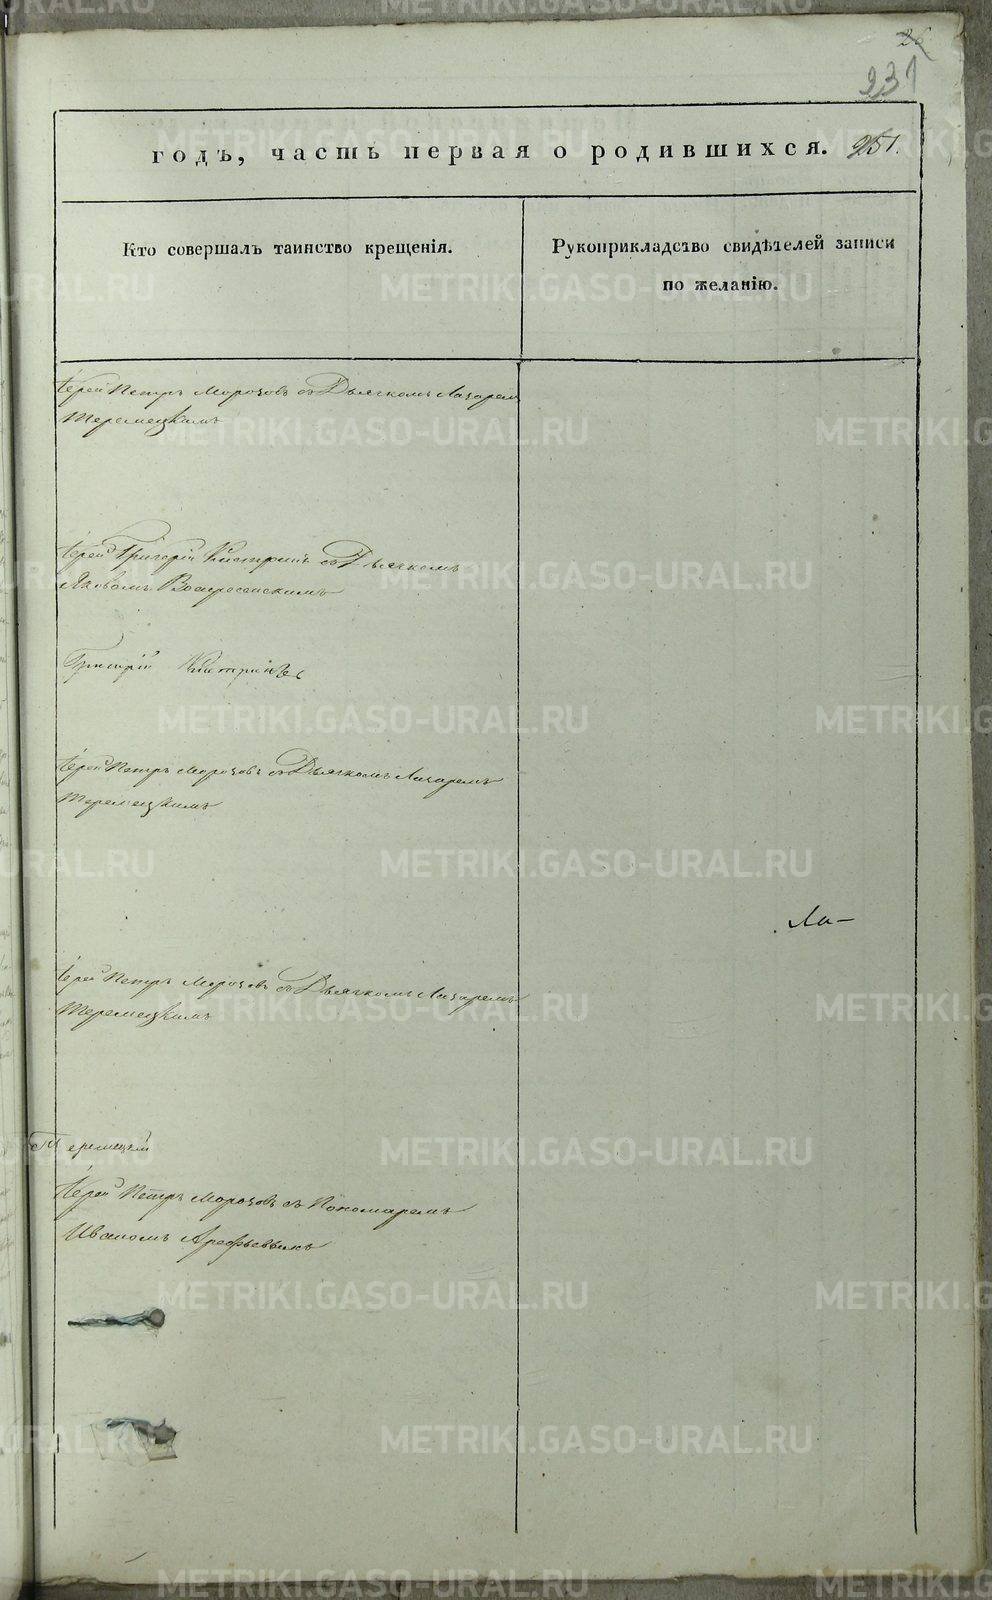 26
231
годъ, часть первая о родившихся. 251.
Кто совершалъ таинство крещенія.
Рукоприкладство свидѣтелей записи
по желанію.
Іерей Петръ Морозовъ съ Дьячкомъ Лазарем
Теремецкимъ
Іерей Григорій съ Дьячкомъ
Яковомъ Воскресенскимъ
Григорій
Іерей Петръ Морозовъ съ Дьячкомъ Лазаремъ
Теремецкимъ
Ла-
Іерей Петръ Морозовъ съ Дьячкомъ Лазаремъ
Теремецкимъ
Іерей Петръ Морозовъ съ Пономаремъ
Иваномъ Арефьевымъ
METRIKI.GASO-URAL.RU